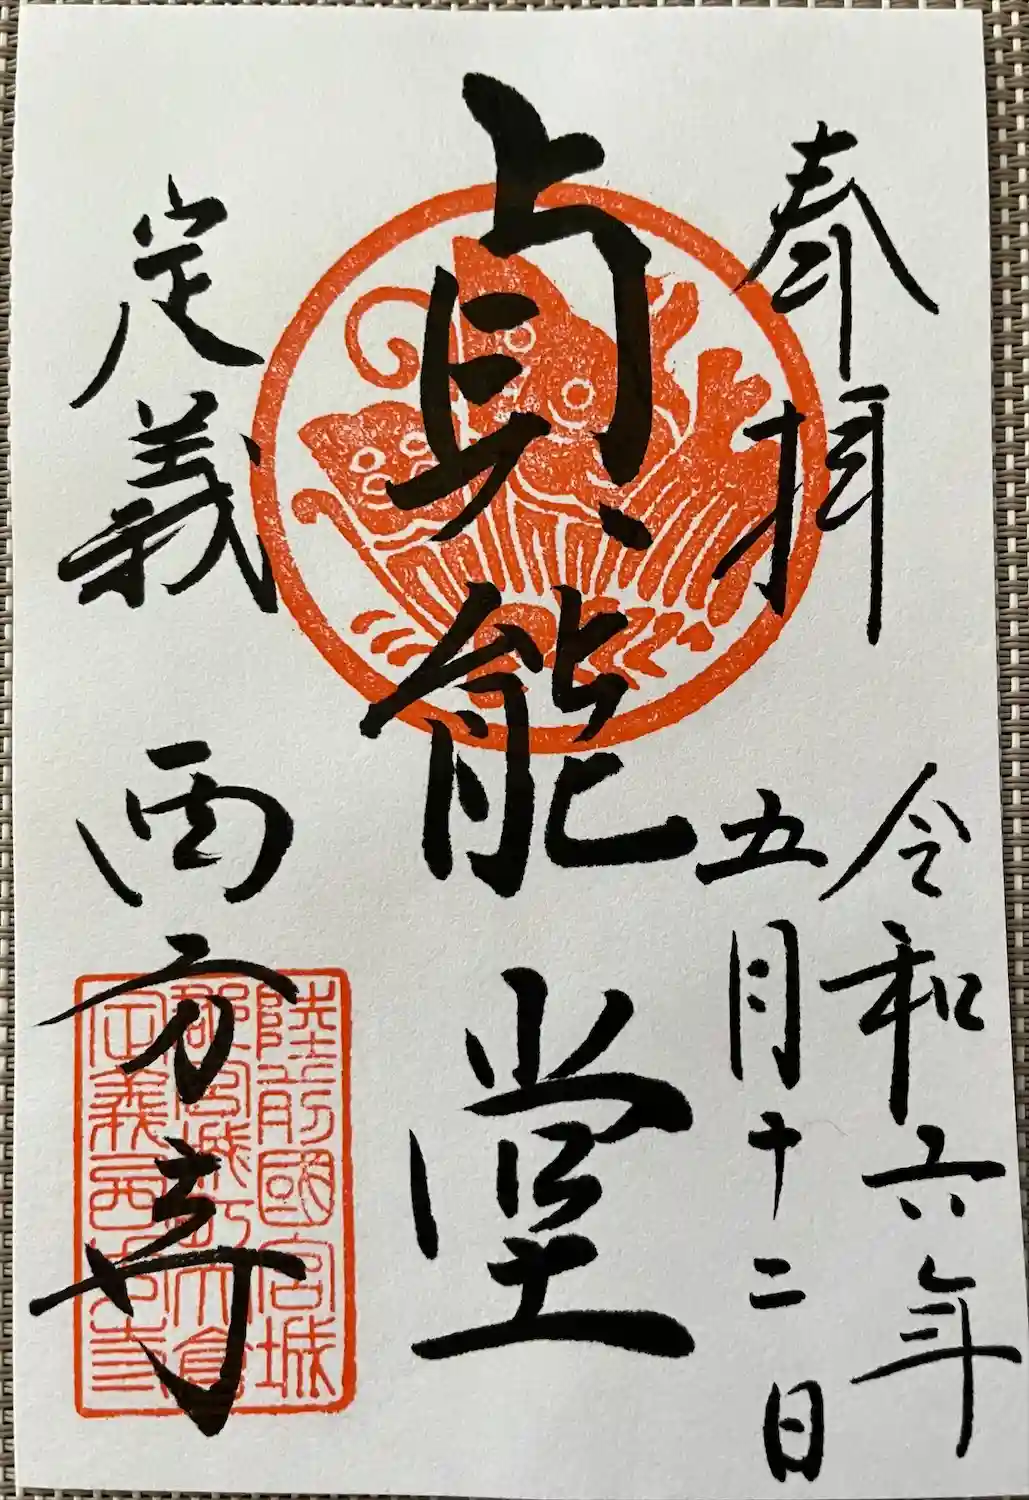 奉拝
令和六年
五月十二日
貞能堂
定義
西方寺
陸前國宮城
郡宮城町大倉
定義西方寺